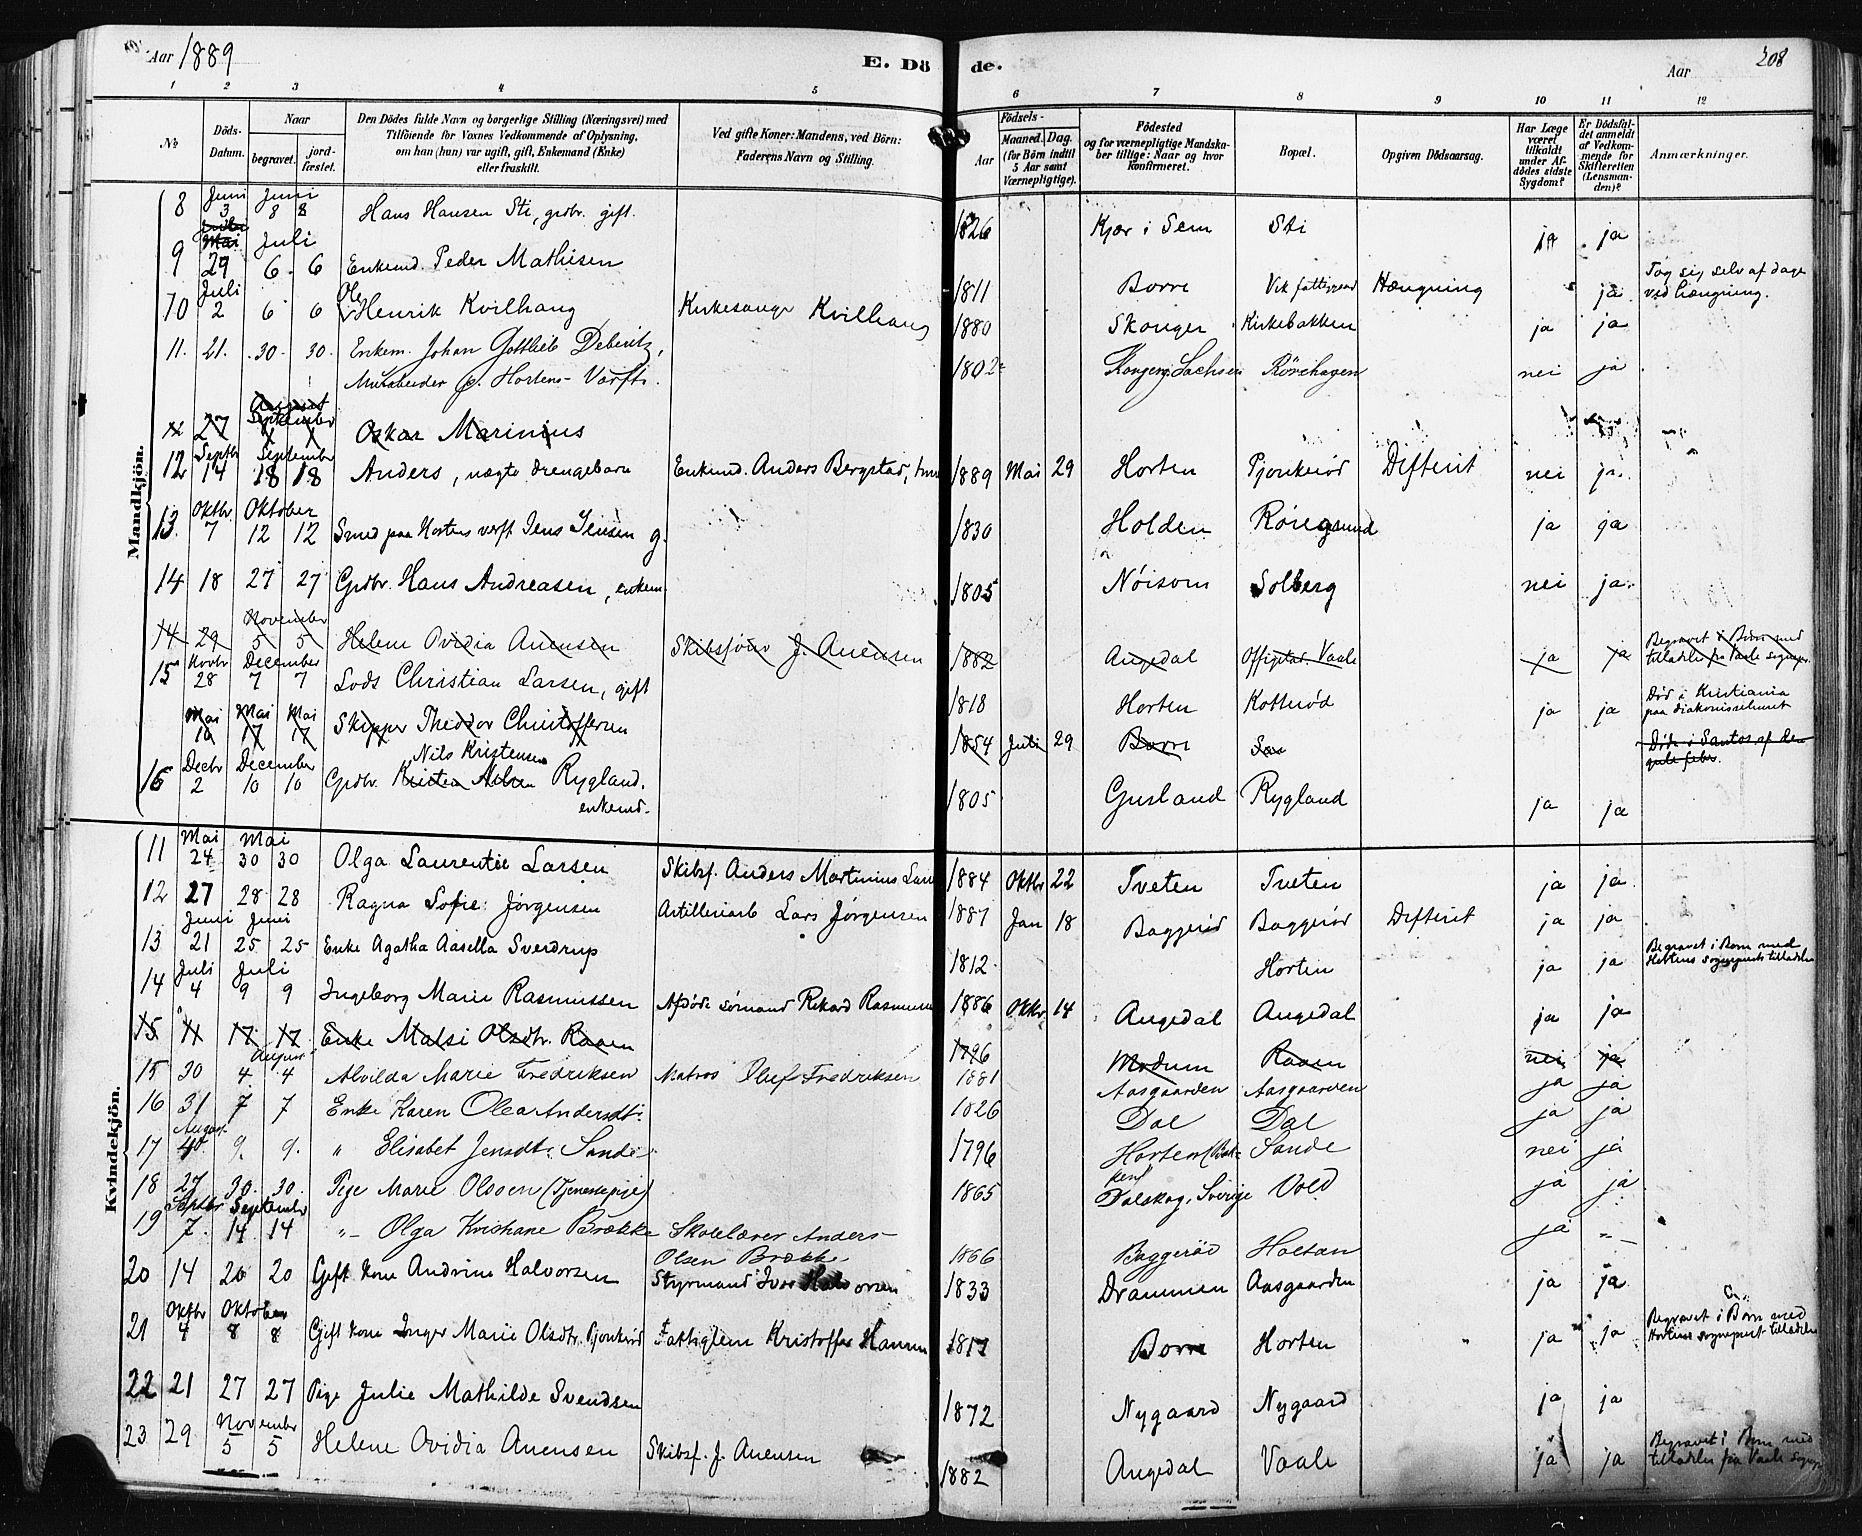 Aar 1889
E. Döde.
Aar
208
1 2 3 4 5 6 7 8 9 10 11 12
No
Döds-Datum.
Naar
begravet.
jord-fæstet.
Den Dödes fulde Navn og borgerlige Stilling (Næringsvei) med
Tilföiende for Voxnes Vedkommende af Oplysning,
om han (hun) var ugift, gift, Enkemand (Enke)
eller fraskilt.
Ved gifte Koner: Mandens, ved Börn:
Faderens Navn og Stilling.
Födsels-
Aar
Maaned. Dag.
(for Börn indtil
5 Aar samt
Værnepligtige).
Födested
og for værnepligtige Mandska-
ber tillige: Naar og hvor
Konfirmeret.
Bopæl.
Opgiven Dödsaarsag.
Har Læge
været
tilkaldt
under Af-
dödes sidste
Sygdom?
Er Dödsfal-
det anmeldt
af Vedkom-
mende for
Skifteretten
(Lensman-
den)?
Anmærkninger.
Mandkjön.
8 Juni 3 Juni 8 8 Hans Hansen Sti, grdbr. gift. 1826 Kjær i Sem Sti ja ja
9 29 Juli 6 6 Enkemd. Peder Mathisen 1811 Borre Vik Hængning ja Tog sig selv af dage ved hængning.
10 Juli 2 6 6 Ole Henrik Kvilhaug Kirkesanger Kvilhaug 1880 Skouger Kirkebakken ja ja
11. 21. 30. 30. Enkem. Johan Gottlieb Deberitz, 1802 Kongerig. Sachsen Rörehagen nei ja
Hortens Værft.
27 September Oskar Marinius
12 Septbr 14 September 18 18 Anders, uægte drengebarn Enkemd. Anders Bergstad, 1889 Mai 29 Horten Pjonkerød Difterit nei ja
13. Oktbr. 7 Oktober 12 12 Smed paa Hortens verft Jens Jensen g. 1830 Holden ja ja
14 18 27 27 Grdbr. Hans Andreasen, enkem. 1805 Nöisom Solberg nei ja
14 29 November 5 5 Helene Ovidia Anensen Skibsfører J. Anensen 1882 Angedal Vaale ja ja Begravet i Borre med tilladelse fra Vaale sognepr.
15 Novbr 28 December 7 7 Lods Christian Larsen, gift 1818 Horten Kotterød ja ja Död i Kristiania paa diakonissehuset
Mai Mai 17 Mai 17 Skipper Theodor Christoffersen 1854 Juli 29 Borre Död i Santos af den gule feber.
16 Decbr 2 December 10 10 Grdbr. Nils Kristensen Rygland. enkemd. 1805 Gusland Rygland ja ja
Kvindekjön.
11 Mai 24 Mai 30 30 Olga Laurentie Larsen Skibsf. Anders Martinius 1884 Oktbr 22 Tveten Tveten ja ja
12 27 28 28 Ragna Sofie Jørgensen Artilleriarb Lars Jørgensen 1887 Jan 18 Baggerød Baggerød Difterit ja ja
13 Juni 21 Juni 25 25 Enke Agatha Aasella Sverdrup 1812 Horten ja ja Begravet i Borre med Hortens sogneprests tilladelse
14 Juli 4 Juli 9 9 Ingeborg Marie Rasmussen Afdøde sømand Rikard 1886 Oktbr. 14 Angedal Angedal ja ja
15 11 17 17 Enke Malsi Olsdtr. Raaen 1796 Modum Raaen nei ja
15 30 August 4 4 Alvilda Marie Fredriksen Matros Oluf Fredriksen 1881 Aasgaarden Aasgaarden ja ja
16 31 7 7 Enke Karen Olea Andersdtr. 1826 Dal Dal ja ja
17 August 9. 9. " Elisabet Jensdtr. Sande 1796 Horten (Bakken) Sande nei ja
18 27 30. 30. Pige Marie Olsen (Tjenestepige) 1865 Dalskog, Sverige Vold ja ja
19 Septbr 7. September 14 14 " Olga Kristiane Brække Skolelærer Anders Olsen Brække 1866 Baggerød Holtan ja "
20 14 20 20 Gift kone Andrine Halvorsen Styrmand Iver Halvorsen 1833 Drammen Aasgaarden ja ja
21 Oktbr 4 Oktober 8 8 Gift kone Inger Marie Olsdtr. Pjonkerød Fattiglem Kristoffer 1817 Borre Horten ja ja Begravet i Borre med Hortens sogneprest tilladelse
22 21 27 27 Pige Julie Mathilde Svendsen 1872 Nygaard Nygaard ja ja
23 29 November 5 5 Helene Ovidia Anensen Skibsf. J. Anensen 1882 Angedal Vaale ja ja Begravet i Borre med tilladelse fra Vaale